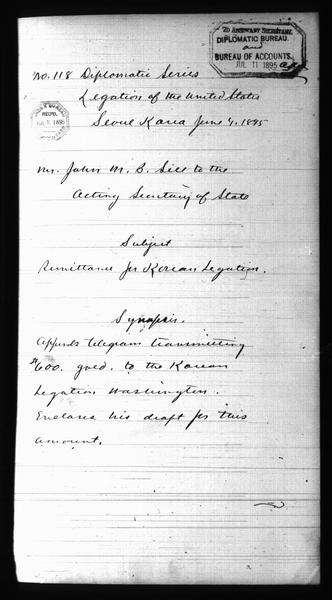 To ASSISTANT SECRETARY.
DIPLOMATIC BUREAU.
and
BUREAU OF ACCOUNTS.
JUL 11 1895
No. 118 Diplomatic Series
Legation of the United States
Seoul Korea June 4, 1895
RECPD.
1895
Mr. John M. B. Sill to the
Acting Secretary of State
Subject
Remittance for Korean Legation.
Synopsis.
Appends telegram transmitting
$600. gold. to the Korean
Legation Washington.
Encloses his draft for this
amount.